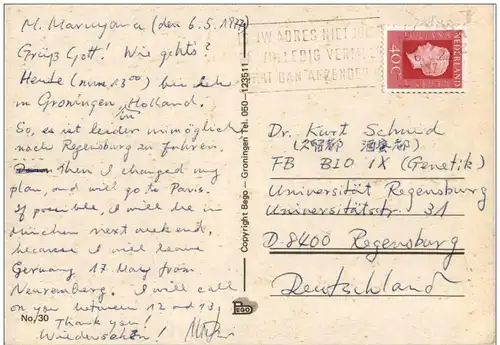 M. Maruyama (den 6.5.1977)
Grüß Gott! Wie geht's?
Heute (um 13⁰⁰) bin ich
in Groningen in Holland.
So, es ist leider unmöglich
nach Regensburg zu fahren.
Then I changed my
plan, and will go to Paris.
If possible, I will be in
München next weekend,
because I will leave
Germany 17. May from
Nuremberg. I will call
on you between 12 and 13
Thank you!
Wiedersehen!
No. 30
Copyright Bego — Groningen Tel. 050-123511
BEGO
UW ADRES NIET
VOLLEDIG
DAN AFZENDER
NEDERLAND
40c
Dr. Kurt Schmid
FB BIO IX (Genetik)
Universität Regensburg
Universitätsstr. 31
D-8400 Regensburg
Deutschland